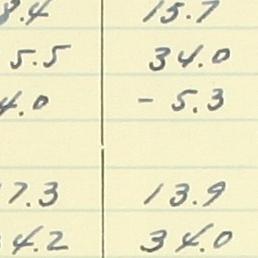 8.4 15.7
5.5 34.0
4.0 - 5.3
7.3 13.9
4.2 34.0